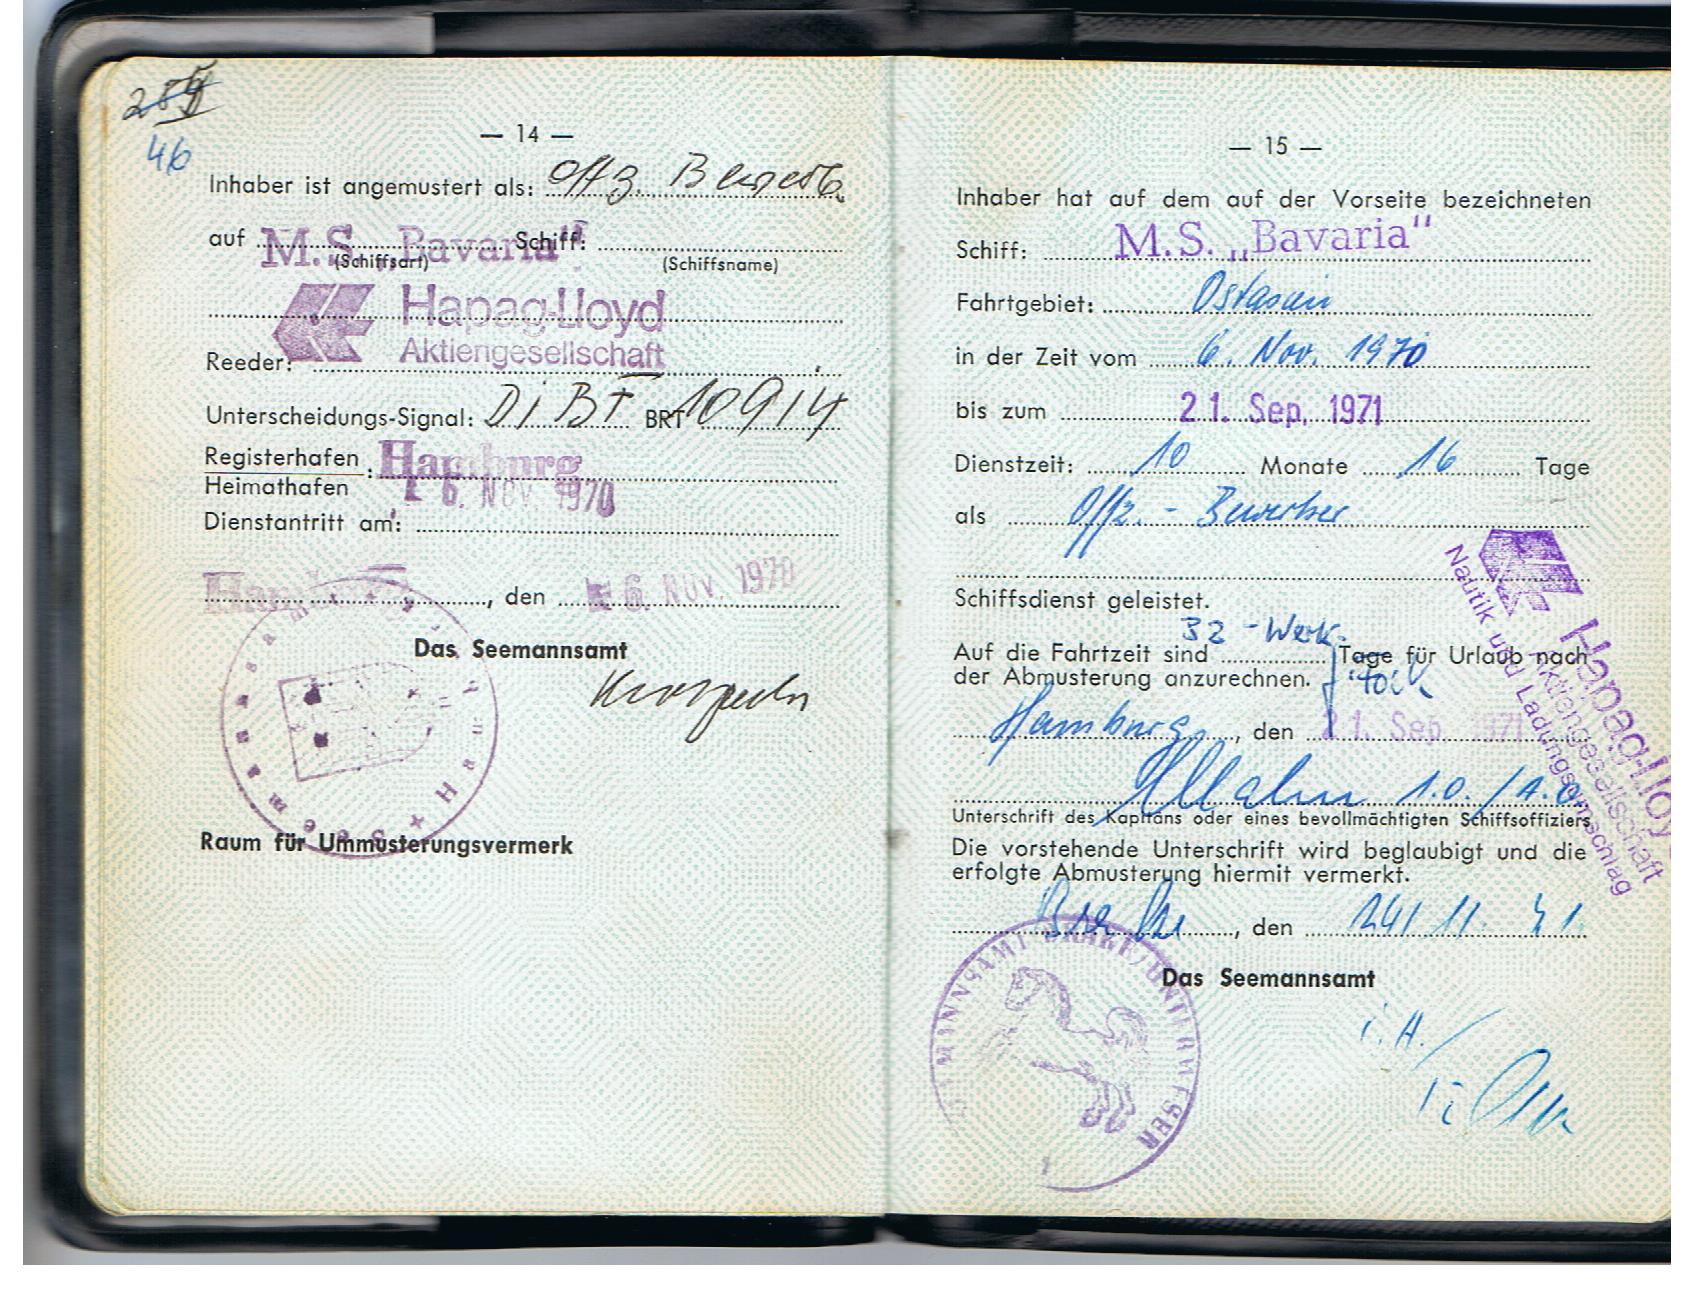 46
— 14 —
Inhaber ist angemustert als: Offz. Bewerb.
auf M.S. „Bavaria" Schiff:
(Schiffsart) (Schiffsname)
Hapag-Lloyd
Aktiengesellschaft
Reeder:
Unterscheidungs-Signal: DiBF BRT 10914
Registerhafen : Hamburg
Heimathafen
6. NOV 1970
Dienstantritt am:
Hamburg, den 6. NOV. 1970
Das Seemannsamt
Raum für Ummusterungsvermerk
— 15 —
Inhaber hat auf dem auf der Vorseite bezeichneten
Schiff: M.S. „Bavaria"
Fahrtgebiet: Ostasien
in der Zeit vom 6. Nov. 1970
bis zum 21. Sep. 1971
Dienstzeit: 10 Monate 16 Tage
als Offz. - Bewerber
Schiffsdienst geleistet.
32 - Werk-
Auf die Fahrtzeit sind Tage für Urlaub nach
der Abmusterung anzurechnen.
Hamburg, den 21. Sep. 1971
1.0. / A.O.
Unterschrift des Kapitäns oder eines bevollmächtigten Schiffsoffiziers
Die vorstehende Unterschrift wird beglaubigt und die
erfolgte Abmusterung hiermit vermerkt.
Brake, den 24/ 11. 71.
Das Seemannsamt
i.A.
SEEMANNSAMT BRAKE/UNTERWESER
Hapag-Lloyd
Aktiengesellschaft
Nautik und Ladungsumschlag